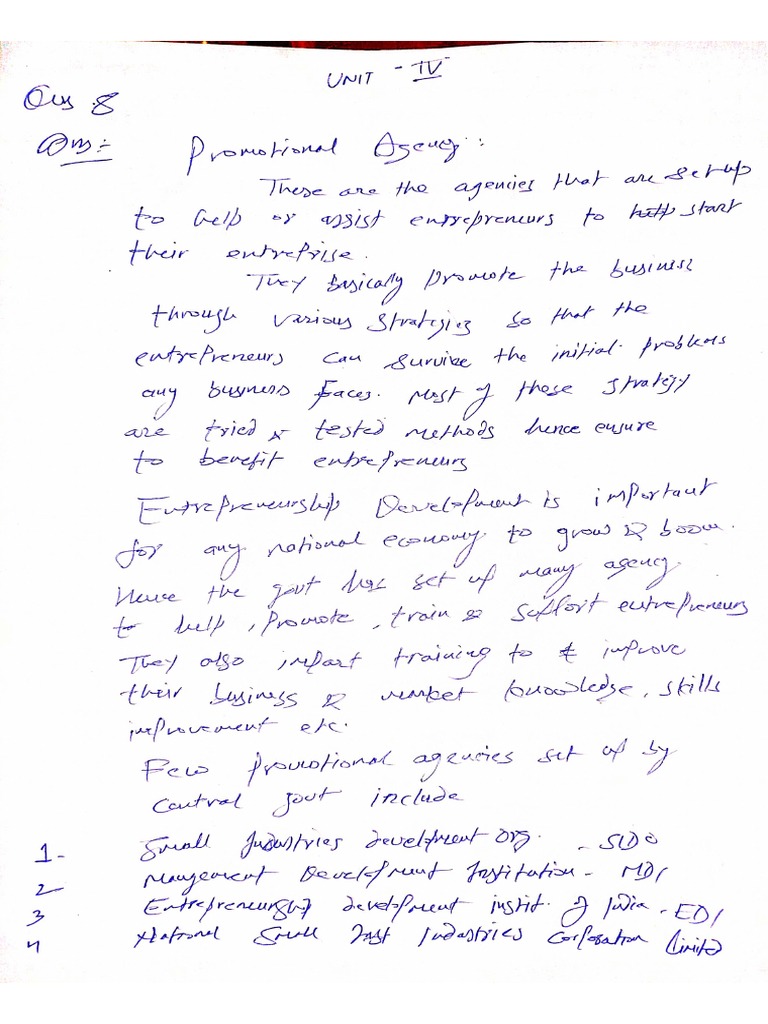 UNIT - IV
Qus 8
Ans:- Promotional Agency:
These are the agencies that are set up
to help or assist entrepreneurs to start
their entreprise.
They Basically promote the business
through various strategies so that the
entrepreneurs can survive the initial problems
any business Faces. Most of these strategy
are tried & tested methods hence ensure
to benefit entrepreneurs
Entrepreneurship Development is important
for any national economy to grow & boom.
Hence the govt has set up many agency
to help, promote, train & support entrepreneurs
They also impart training to improve
their business & market knowledge, skills
improvement etc.
Few promotional agencies set up by
Central govt include
1- Small Industries development org. - SIDO
2- Mangement Development Institution - MDI
3 Entrepreneurship development instit. of India - EDI
4 National Small Industries Corporation Limited